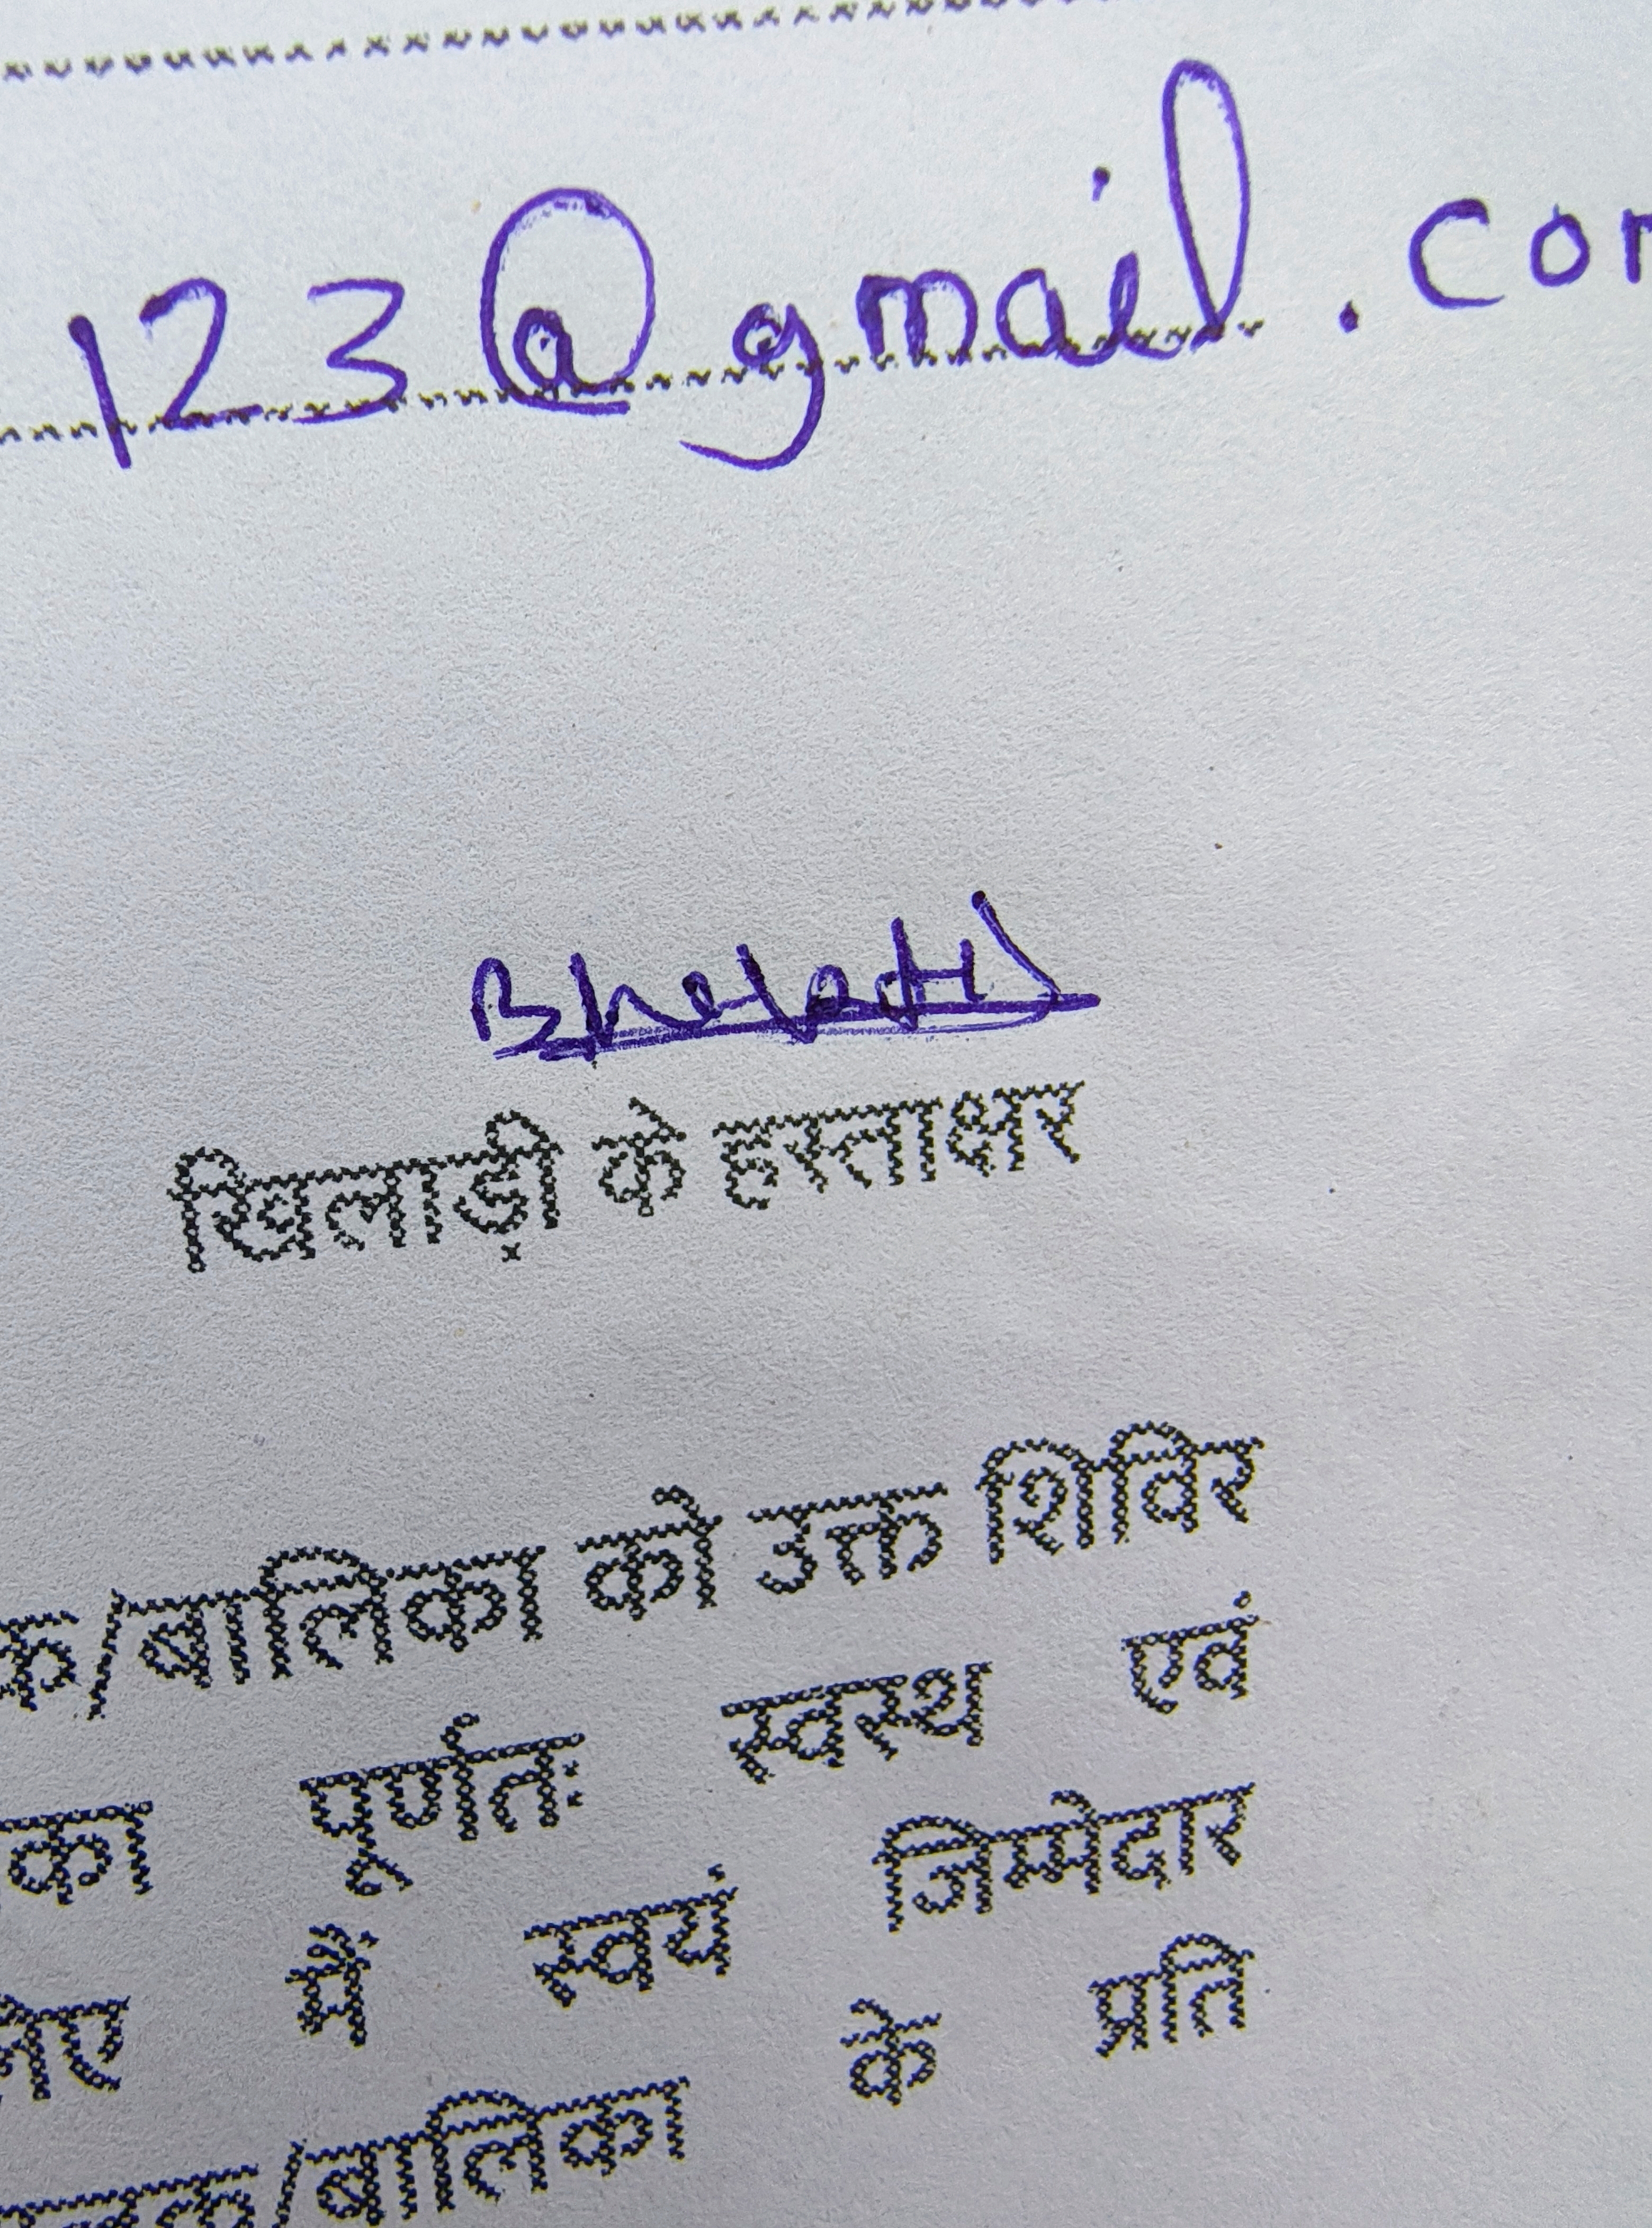 123@gmail.com
खिलाड़ी के हस्ताक्षर
क/बालिका को उक्त शिविर
का पूर्णतः स्वस्थ एवं
मैं स्वयं जिम्मेदार
के प्रति
लक/बालिका